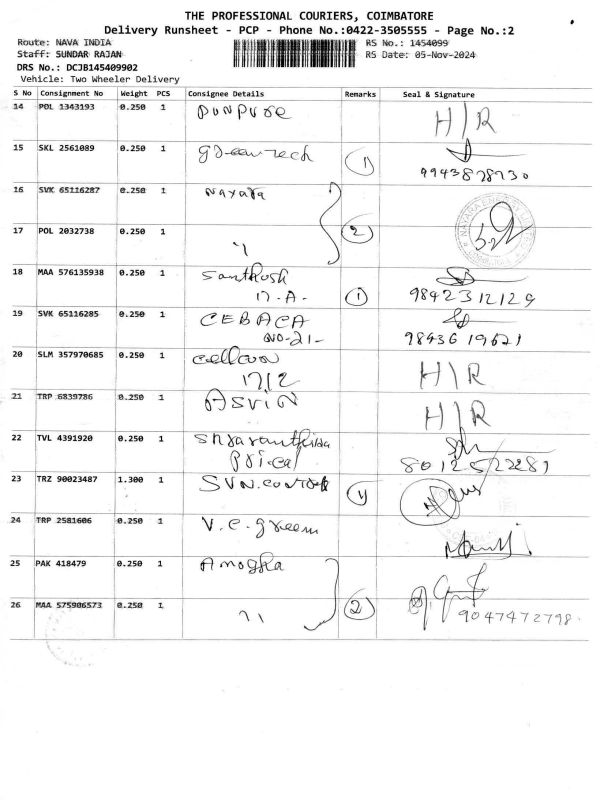 THE PROFESSIONAL COURIERS, COIMBATORE
Delivery Runsheet - PCP - Phone No.:0422-3505555 - Page No.:2
Route: NAVA INDIA RS No.: 1454099
Staff: SUNDAR RAJAN RS Date: 05-Nov-2024
DRS No.: DCJB145409902
Vehicle: Two Wheeler Delivery
S No Consignment No Weight PCS Consignee Details Remarks Seal & Signature
14 POL 1343193 0.250 1 H/R
15 SKL 2561089 0.250 1 greentech 1
9943878730
16 SVK 65116287 0.250 1 Nayara
17 POL 2032738 0.250 1 " 2
18 MAA 576135938 0.250 1 Santhosh
17-A- 1 9842312129
19 SVK 65116285 0.250 1 CEBACA
NO-21- 9843619621
20 SLM 357970685 0.250 1
17/2 H/R
21 TRP 6839786 0.250 1 ASVIN H/R
22 TVL 4391920 0.250 1
23 TRZ 90023487 1.300 1 SVN.
24 TRP 2581606 0.250 1 V.C. green
25 PAK 418479 0.250 1 Amogha
26 MAA 575906573 0.250 1 " 2 9047472798